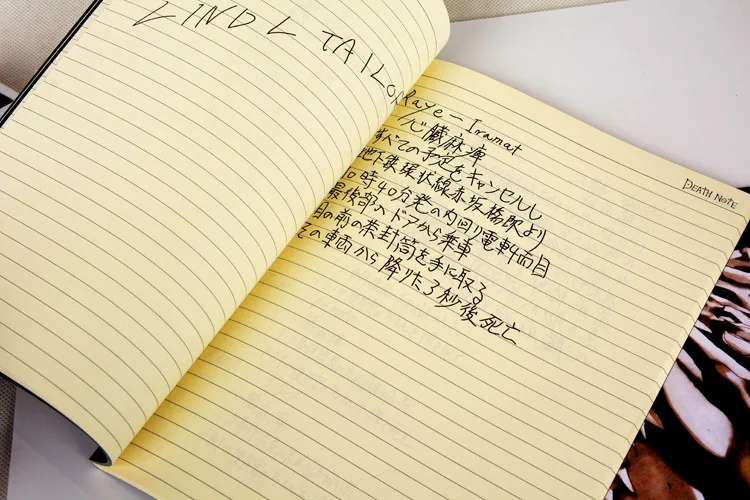 LIND L TAILOR
DEATH NOTE
Raye – Iramat
心臓麻痺
すべての予定をキャンセルし
地下鉄環状線赤坂橋駅より
10時40分発の内回り電車4両目
最後部のドアから乗車
目の前の茶封筒を手に取る
その車両から降りた3秒後死亡